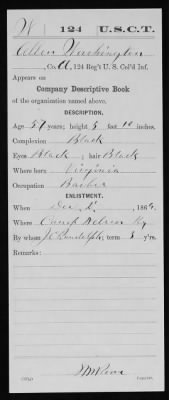 W 124 U.S.C.T.
Allen Washington
, Co. A, 124 Reg't U. S. Col'd Inf.
Appears on
Company Descriptive Book
of the organization named above.
DESCRIPTION.
Age 57 years; height 5 feet 10 inches.
Complexion Black
Eyes Black ; hair Black
Where born Virginia
Occupation Barber
ENLISTMENT.
When Dec , 186
Where Camp Nelson Ky
By whom Randolph; term 3 y'rs.
Remarks: